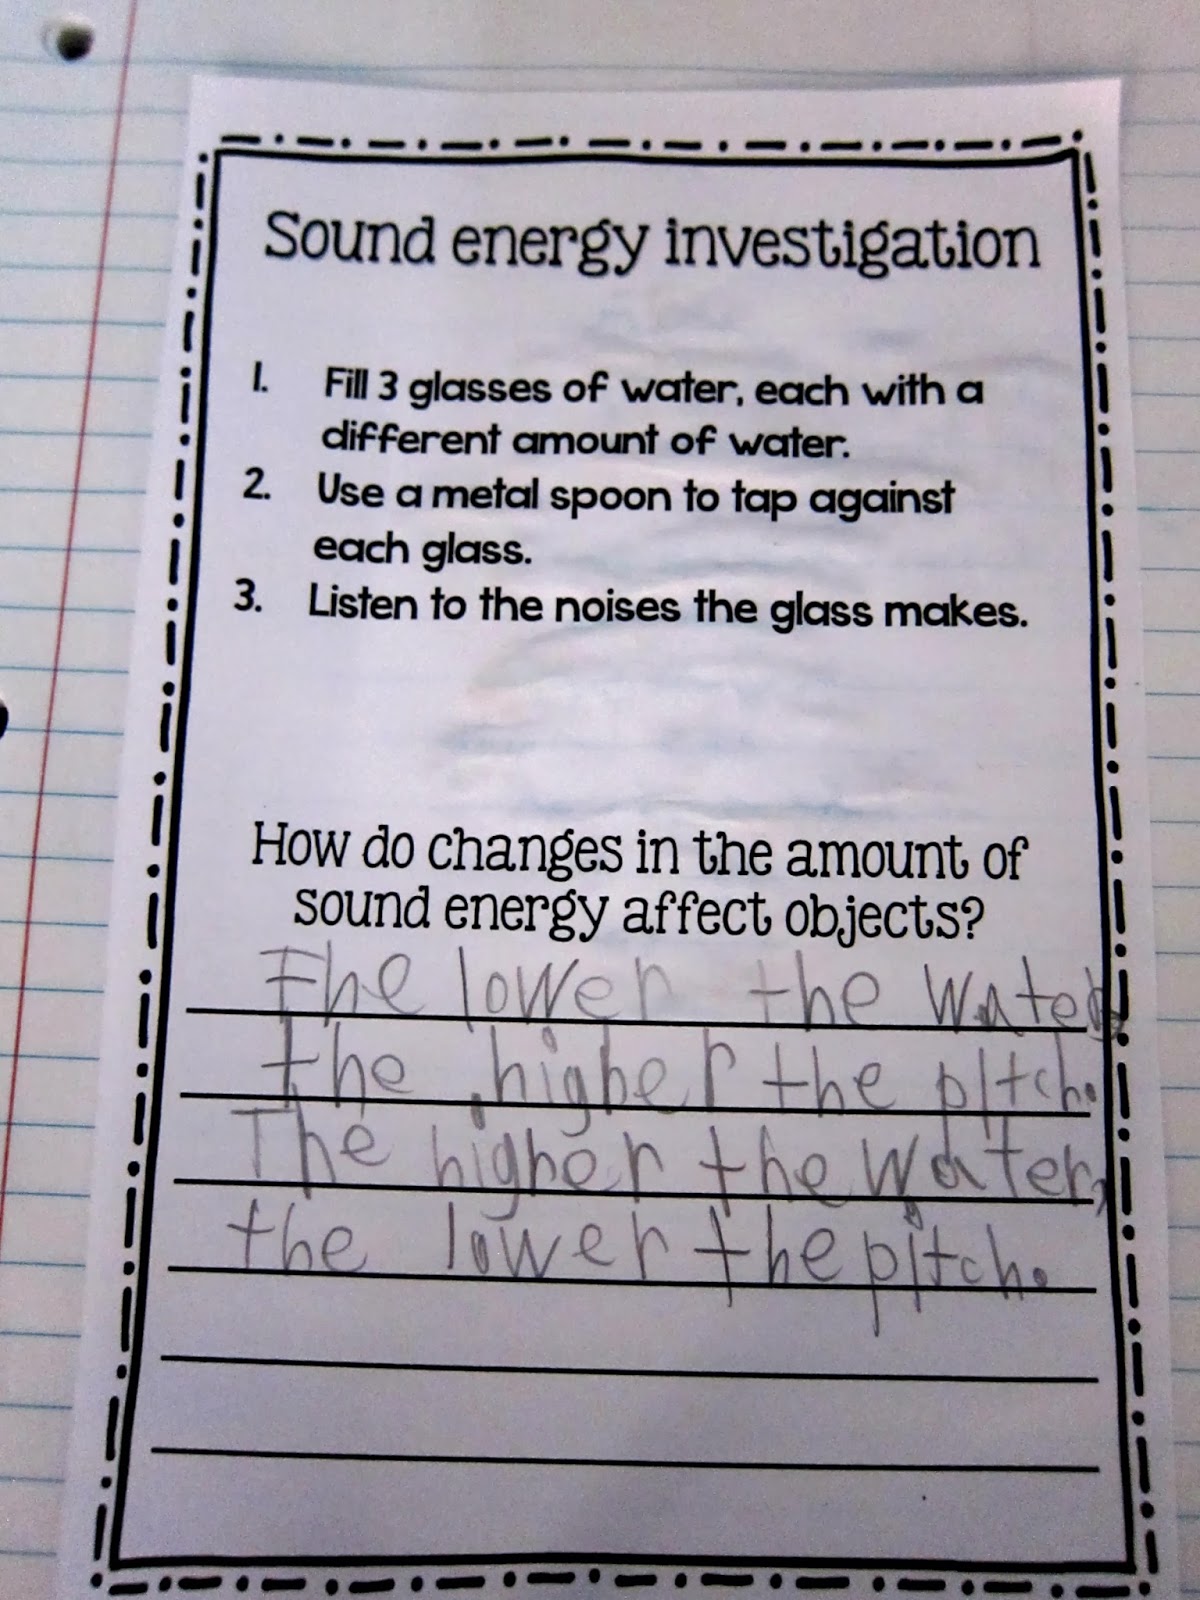 Sound energy investigation
1. Fill 3 glasses of water, each with a
different amount of water.
2. Use a metal spoon to tap against
each glass.
3. Listen to the noises the glass makes.
How do changes in the amount of
sound energy affect objects?
The lower the water,
the higher the pitch.
The higher the water,
the lower the pitch.